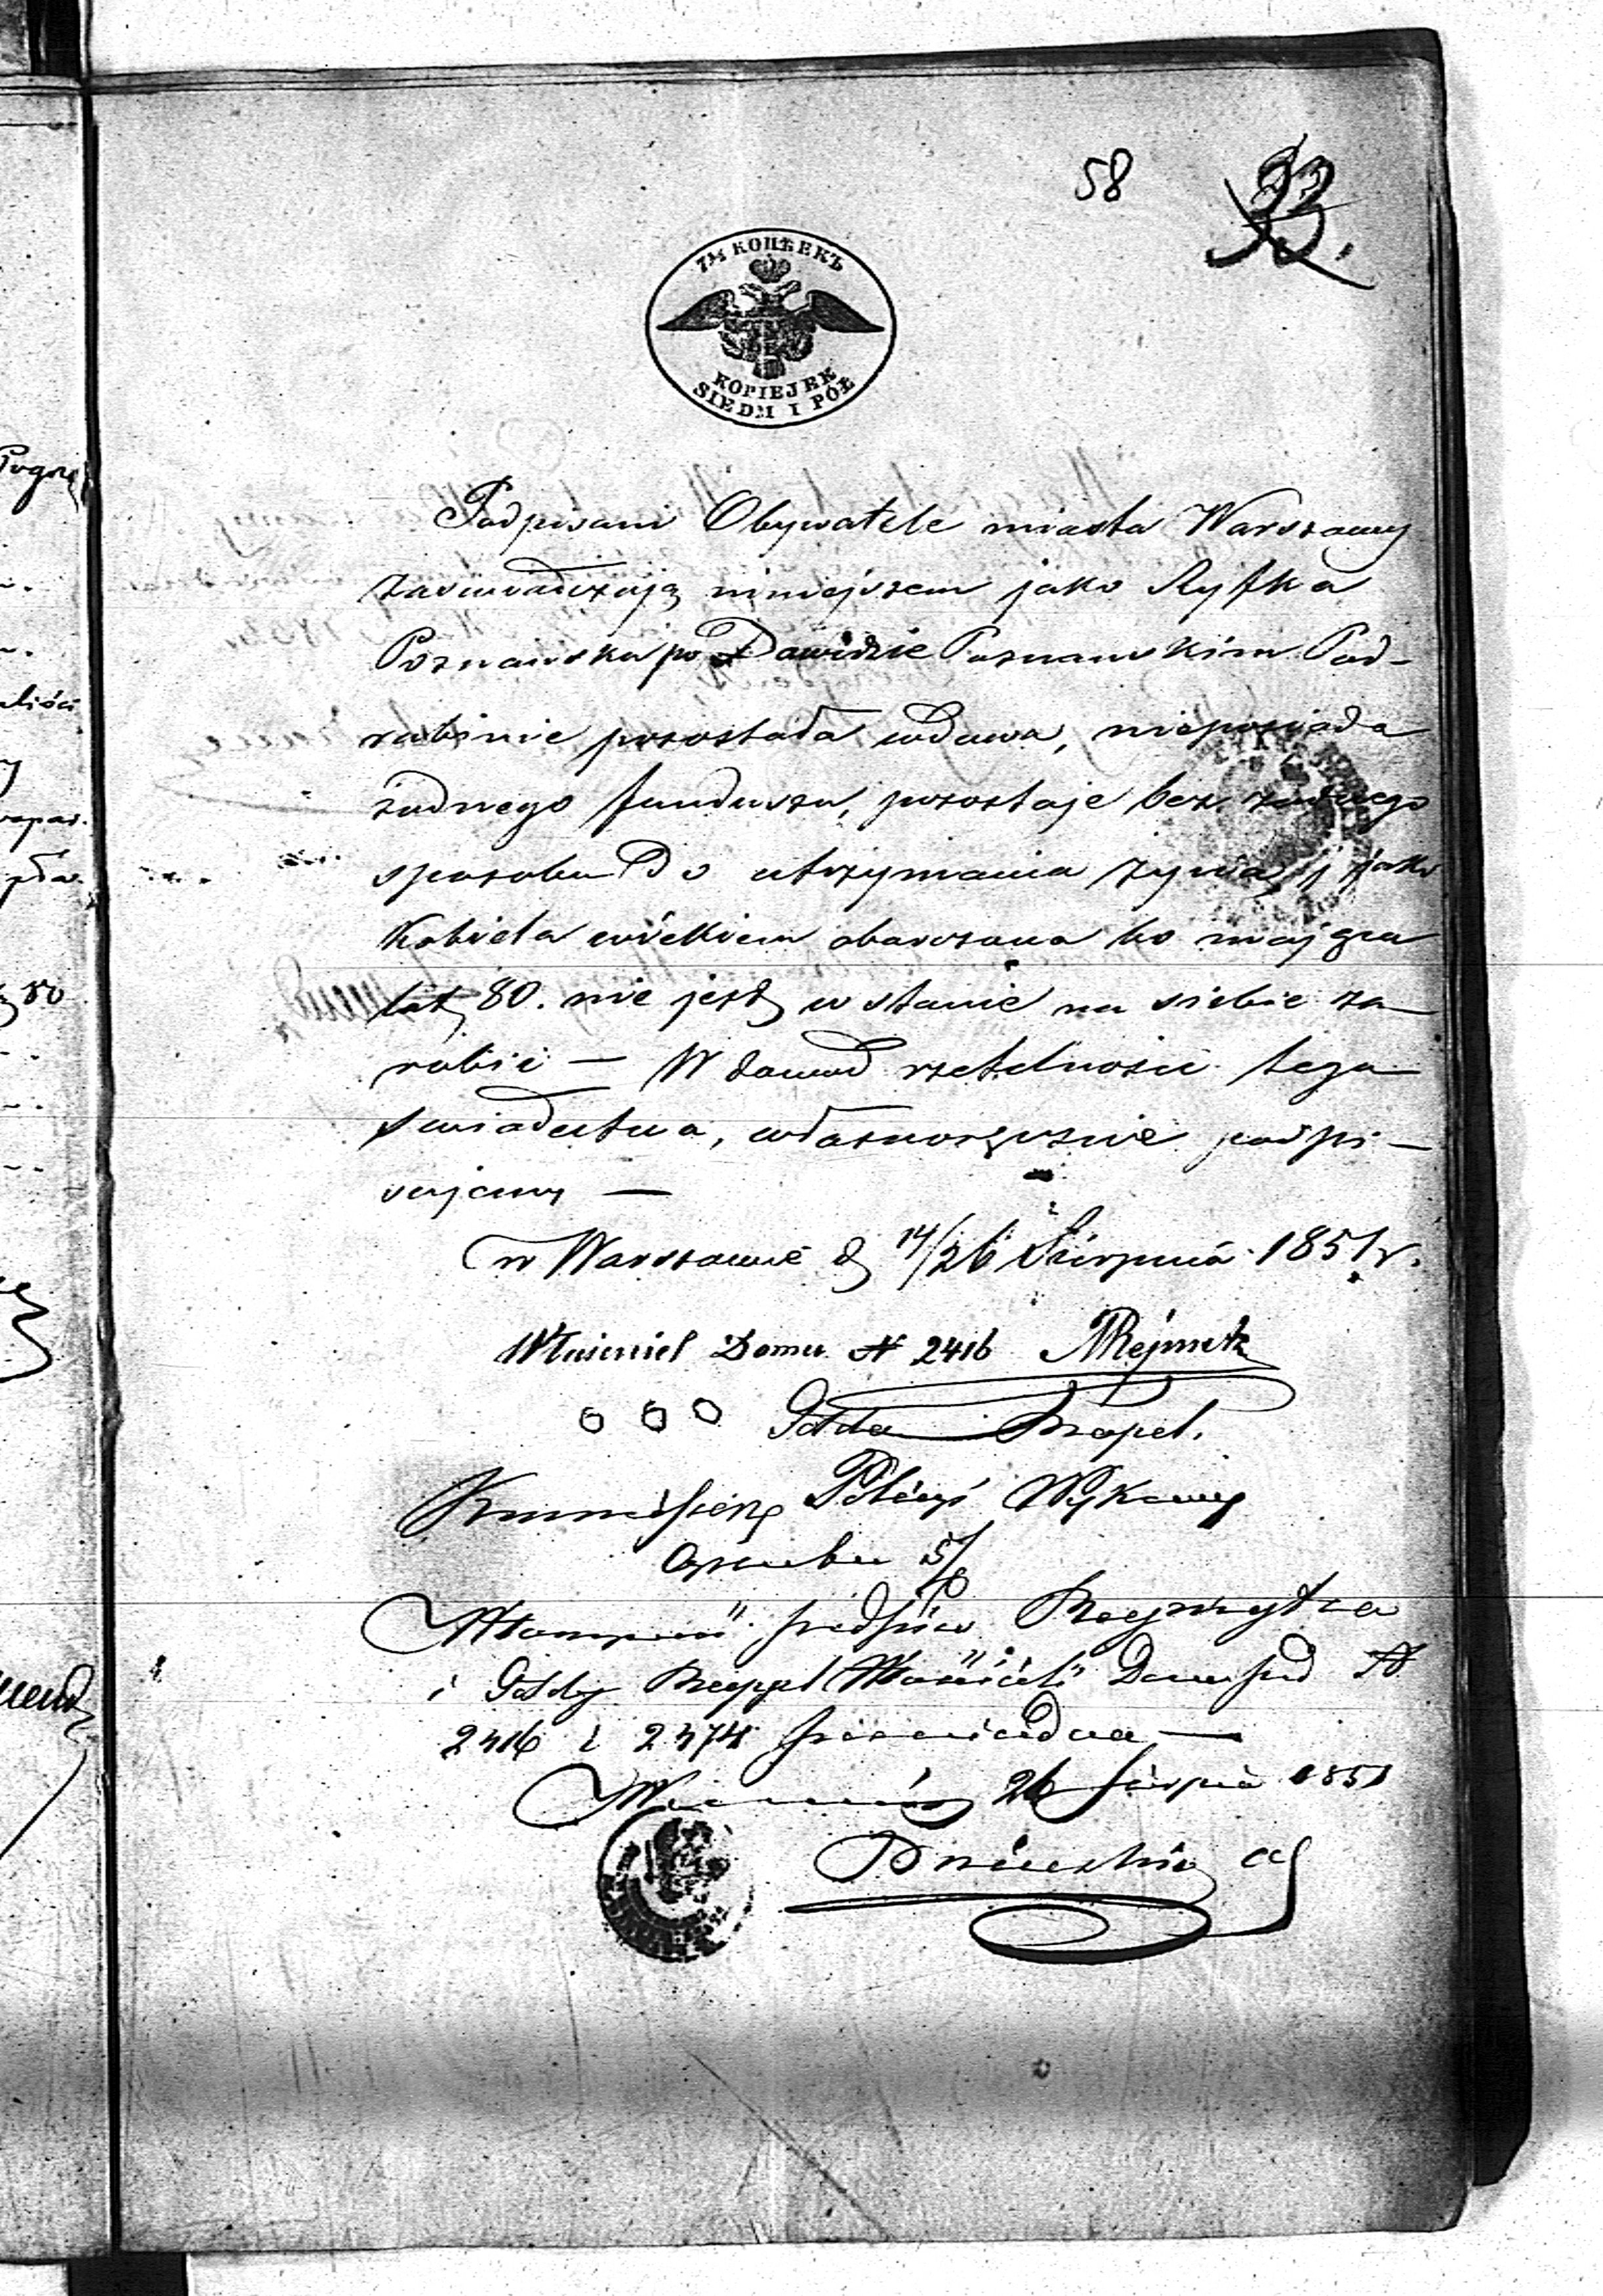 58 33.
7½ КОПѢЕКЪ
KOPIEJEK
SIEDM I PÓŁ
Podpisani Obywatele miasta Warszawy
zaświadczają niniejszem jako Ryfka
Poznańska po Dawidzie Poznańskim Pod-
rabinie pozostała wdowa, nieposiada
żadnego funduszu, pozostaje bez żadnego
sposobu do utrzymania życia, i jako
Kobieta wiekiem obarczona bo mająca
lat 80. nie jest w stanie na siebie za-
robić — W dowód rzetelności tego
świadectwa, własnoręcznie podpi-
sujemy —
w Warszawie d 14/26 Sierpnia 1851 r.
Właściciel Domu N 2416 Rejmetz
Golda
Kommissarz Policyi Wykonaw
Cyrkułu 5/6
Własność podpisów
i Goldy Właścicieli Domu pod N
2416 i 2474 poświadcza —
26 Sierpnia 1851